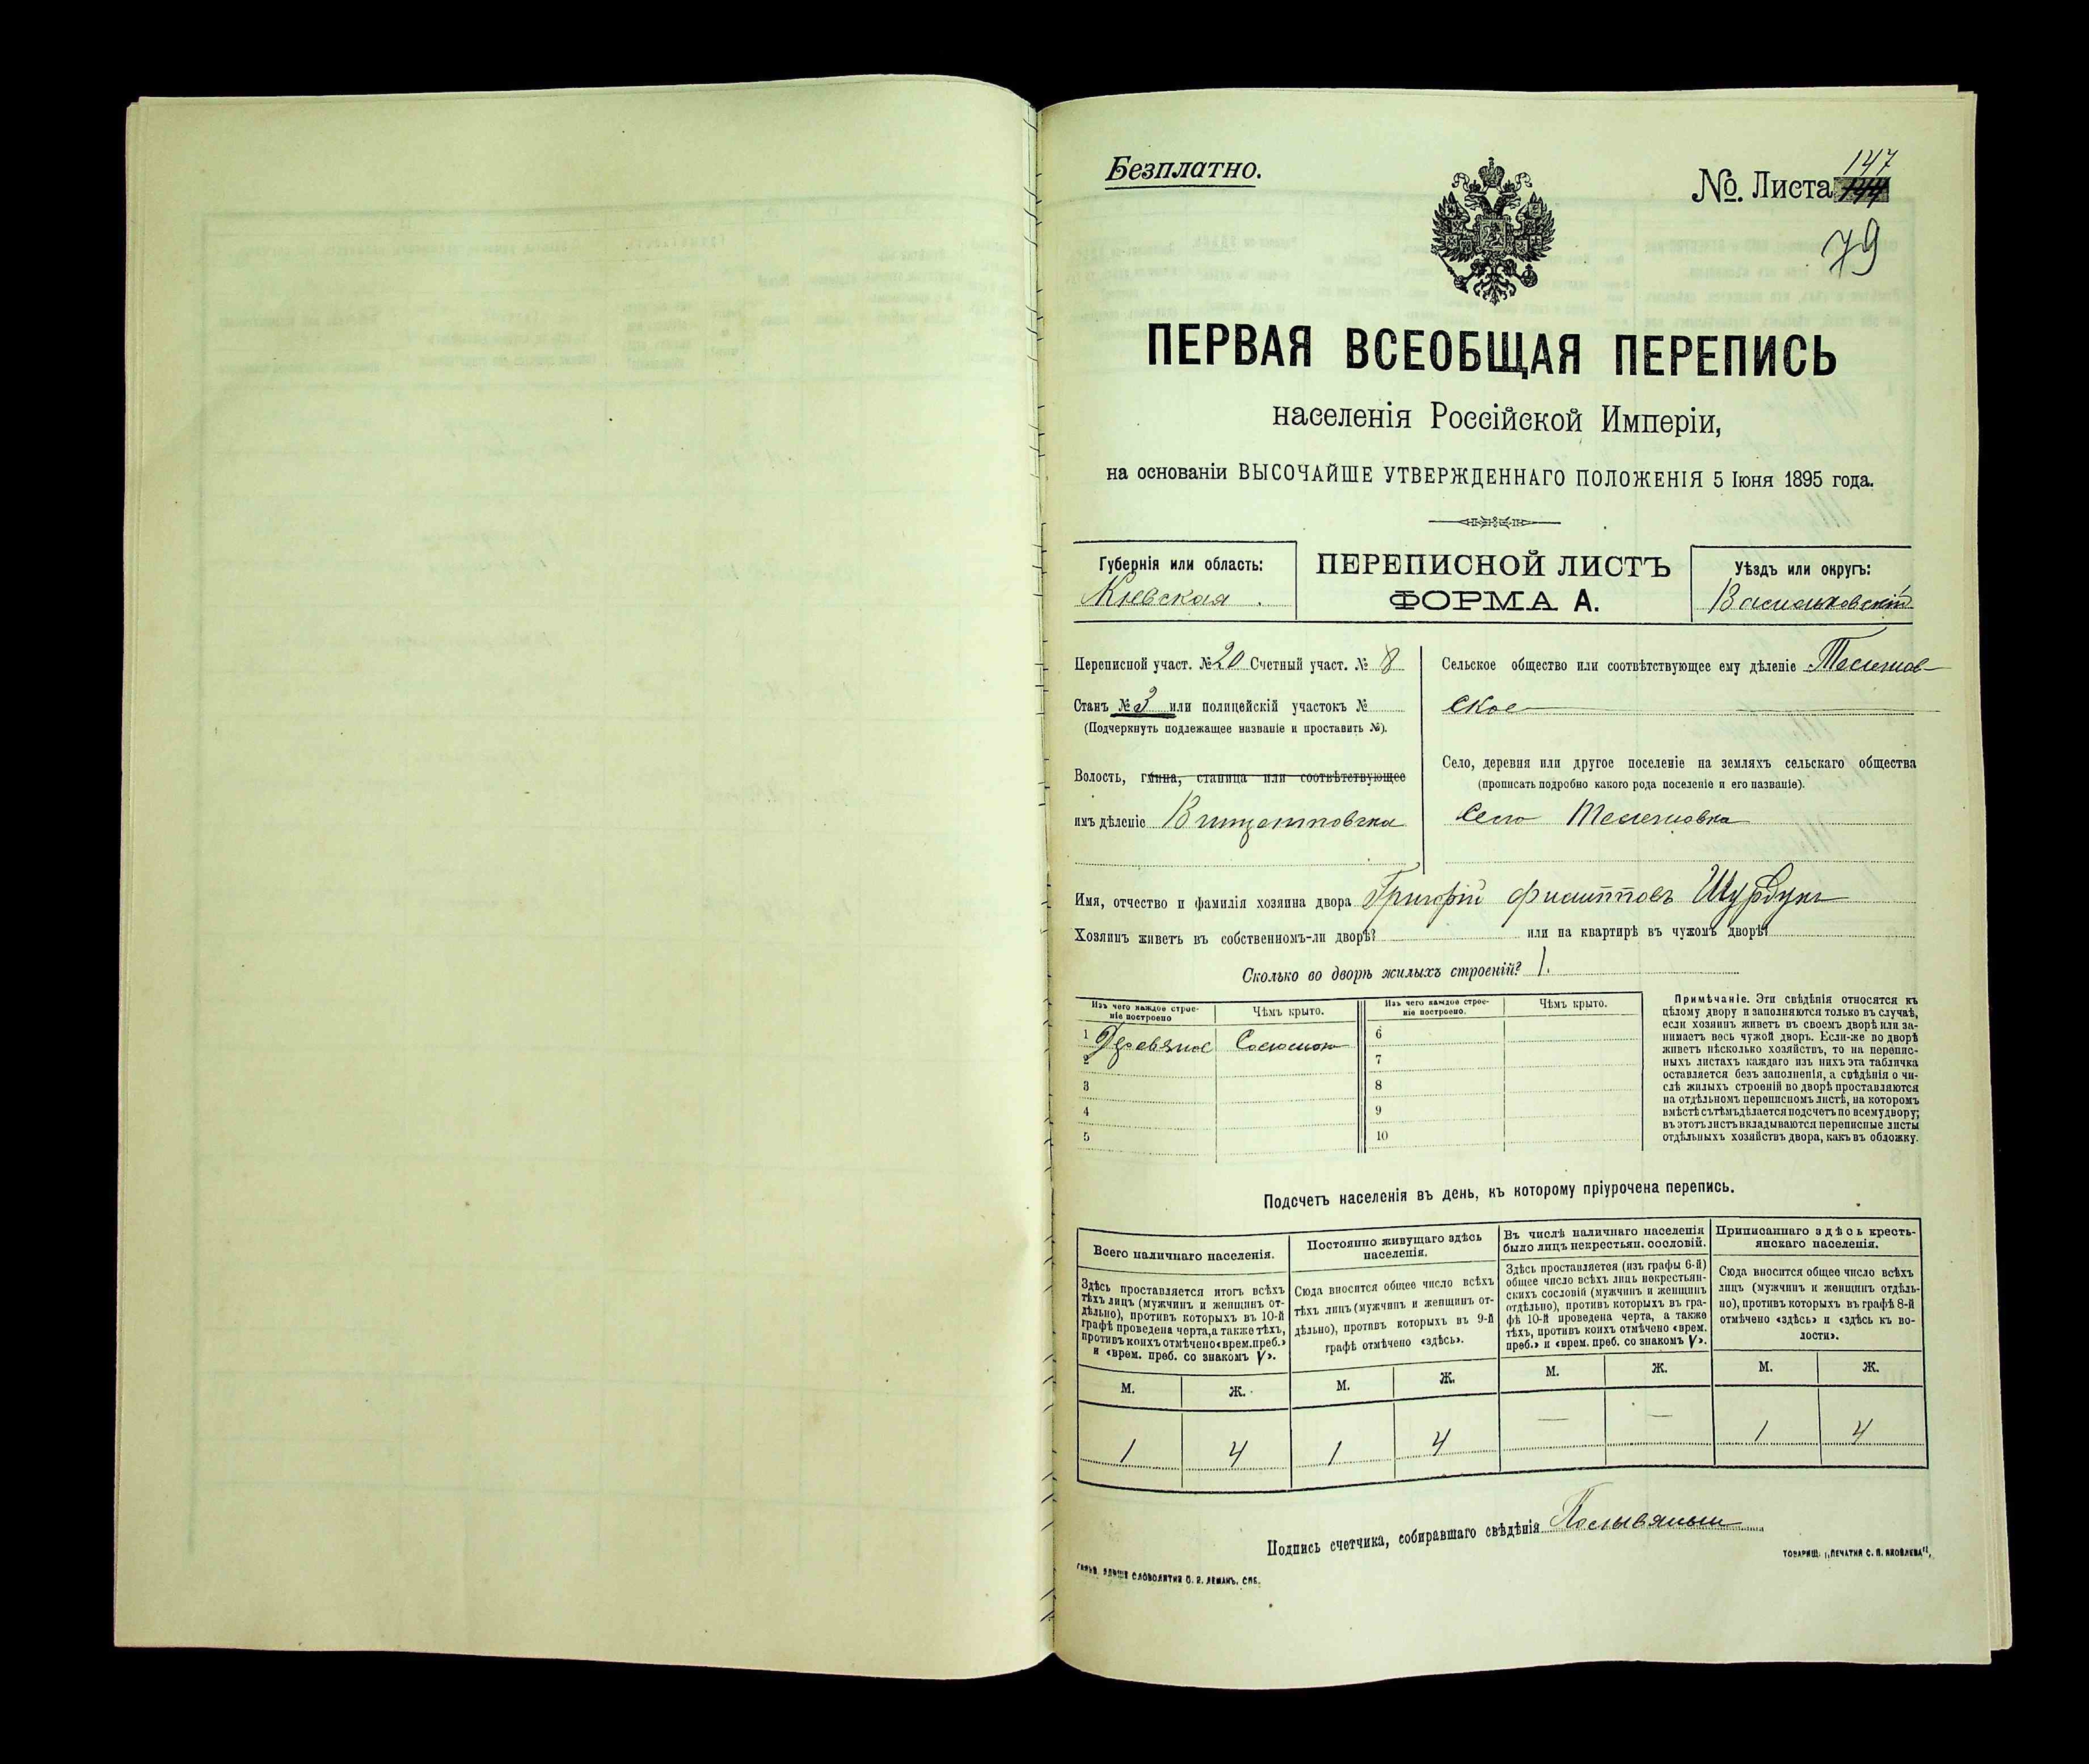 Безплатно.
№. Листа 147
79
ПЕРВАЯ ВСЕОБЩАЯ ПЕРЕПИСЬ
населенія Россійской Имперіи,
на основаніи ВЫСОЧАЙШЕ УТВЕРЖДЕННАГО ПОЛОЖЕНІЯ 5 Іюня 1895 года.
Губернія или область:
Кіевская
ПЕРЕПИСНОЙ ЛИСТЪ
ФОРМА А.
Уѣздъ или округъ:
Васильковскій
Переписной участ. № 20 Счетный участ. № 8
Станъ № 3 или полицейскій участокъ №
(Подчеркнуть подлежащее названіе и проставить №).
Волость, гмина, станица или соотвѣтствующее
имъ дѣленіе
Сельское общество или соотвѣтствующее ему дѣленіе Телешов-
ское
Село, деревня или другое поселеніе на земляхъ сельскаго общества
(прописать подробно какого рода поселеніе и его названіе).
Село Телешовка
Имя, отчество и фамилія хозяина двора Григорій Филипповъ
Хозяинъ живетъ въ собственномъ-ли дворѣ? или на квартирѣ въ чужомъ дворѣ?
Сколько во дворѣ жилыхъ строеній? 1.
Изъ чего каждое строе-
ніе построено
Чѣмъ крыто.
Изъ чего каждое строе-
ніе построено.
Чѣмъ крыто.
1 Деревяное Соломою 6
2 7
3 8
4 9
5 10
Примѣчаніе. Эти свѣдѣнія относятся къ
цѣлому двору и заполняются только въ случаѣ,
если хозяинъ живетъ въ своемъ дворѣ или за-
нимаетъ весь чужой дворъ. Если-же во дворѣ
живетъ нѣсколько хозяйствъ, то на перепис-
ныхъ листахъ каждаго изъ нихъ эта табличка
оставляется безъ заполненія, а свѣдѣнія о чи-
слѣ жилыхъ строеній во дворѣ проставляются
на отдѣльномъ переписномъ листѣ, на которомъ
вмѣстѣ съ тѣмъ дѣлается подсчетъ по всему двору;
въ этотъ листъ вкладываются переписные листы
отдѣльныхъ хозяйствъ двора, какъ въ обложку.
Подсчетъ населенія въ день, къ которому пріурочена перепись.
Всего наличнаго населенія.
Здѣсь проставляется итогъ всѣхъ
тѣхъ лицъ (мужчинъ и женщинъ от-
дѣльно), противъ которыхъ въ 10-й
графѣ проведена черта, а также тѣхъ,
противъ коихъ отмѣчено «врем. преб.»
и «врем. преб. со знакомъ V».
Постоянно живущаго здѣсь
населенія.
Сюда вносится общее число всѣхъ
тѣхъ лицъ (мужчинъ и женщинъ от-
дѣльно), противъ которыхъ въ 9-й
графѣ отмѣчено «здѣсь».
Въ числѣ наличнаго населенія
было лицъ некрестьян. сословій.
Здѣсь проставляется (изъ графы 6-й)
общее число всѣхъ лицъ некрестьян-
скихъ сословій (мужчинъ и женщинъ
отдѣльно), противъ которыхъ въ гра-
фѣ 10-й проведена черта, а также
тѣхъ, противъ коихъ отмѣчено «врем.
преб.» и «врем. преб. со знакомъ V».
Приписаннаго здѣсь кресть-
янскаго населенія.
Сюда вносится общее число всѣхъ
лицъ (мужчинъ и женщинъ отдѣль-
но), противъ которыхъ въ графѣ 8-й
отмѣчено «здѣсь» и «здѣсь къ во-
лости».
М. Ж. М. Ж. М. Ж. М. Ж.
1 4 1 4 — — 1 4
Подпись счетчика, собиравшаго свѣдѣнія
СЛОВОЛИТНЯ О. И. ЛЕМАНЪ, СПБ.
ТОВАРИЩ. „ПЕЧАТНЯ С. П. ЯКОВЛЕВА“,